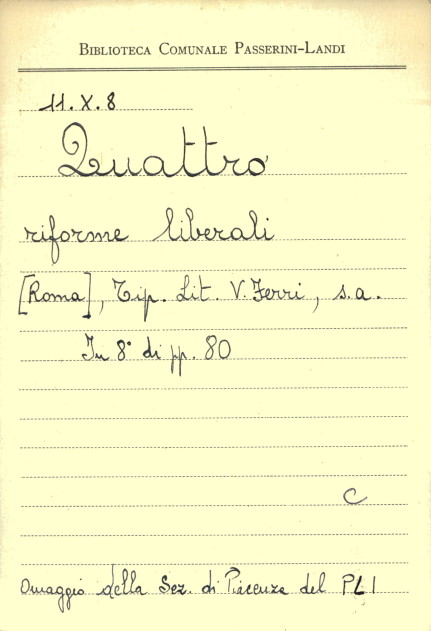 BIBLIOTECA COMUNALE PASSERINI-LANDI
11.X.8
Quattro
riforme liberali
[Roma], Tip. Lit. V. Ferri, s.a.
In 8° di pp. 80
C
Omaggio della Sez. di Piacenza del PLI